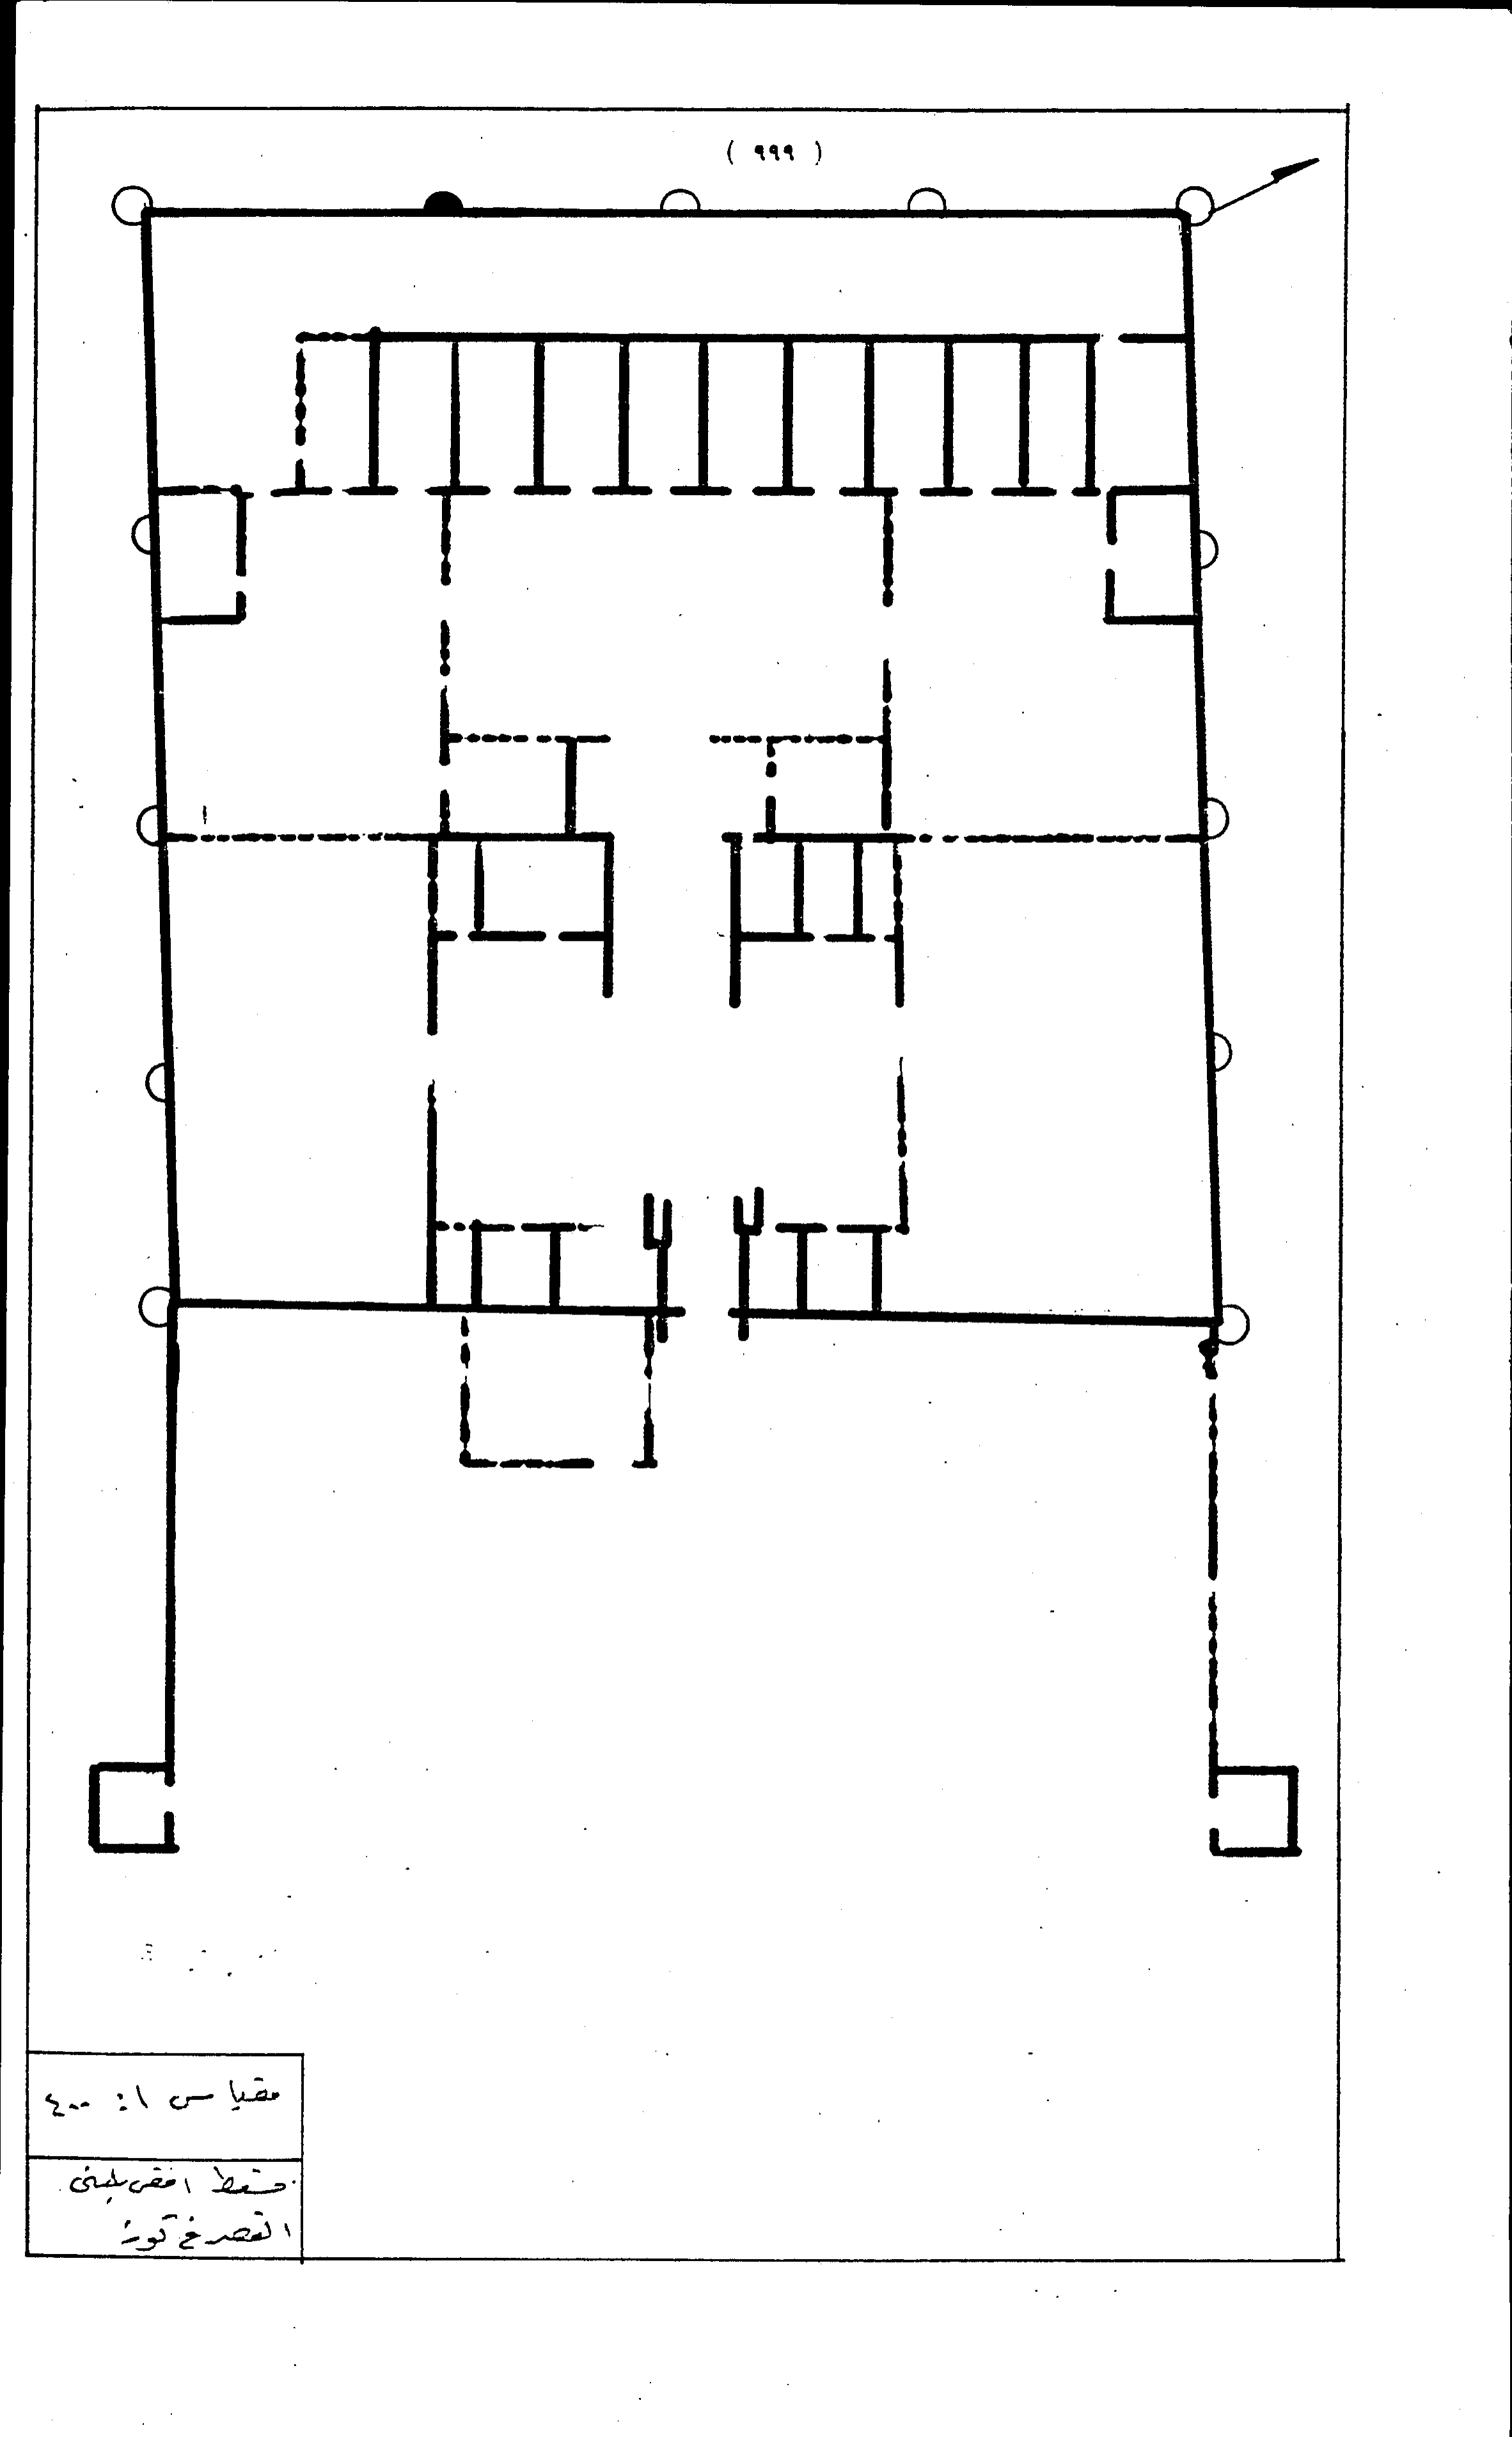 ( ٩٩٩ )
مقياس ١: ٤٠٠
مسقط افقى لمبنى
القصر في توز